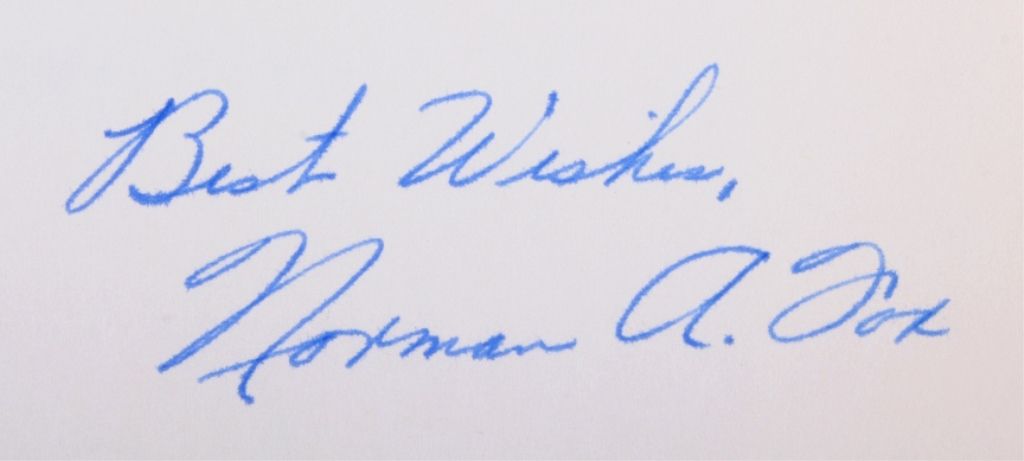 Best Wishes,
Norman A. Fox